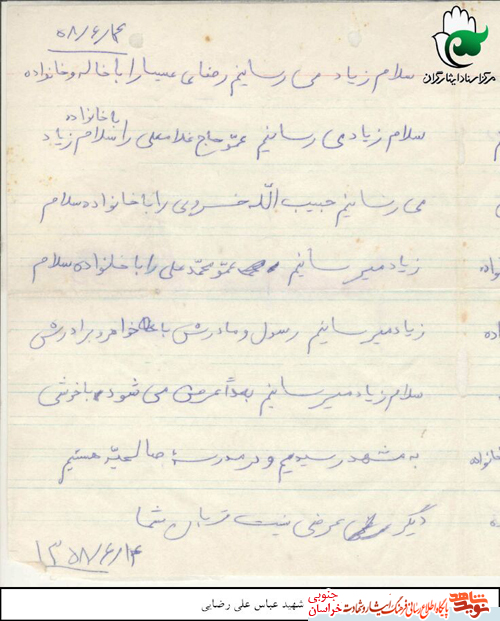 ۵۸/۶/۱۴
مرکز اسناد ایثارگران
سلام زیاد می رسانیم رضائی عیسی را با خاله و خانواده
با خانواده
سلام زیاد می رسانیم عمّو حاج غلامعلی را سلام زیاد
می رسانیم حبیب الّله خسروی را با خانواده سلام
زیاد میرسانیم عمّو محمّد علی را با خانواده سلام
زیاد میرسانیم رسول و مادرش با خواهر و برادرش
سلام زیاد میرسانیم بعداً عرض می شود با خوشی
به مشهد رسیدیم و در مدرسهٔ صالحیّه هستیم
دیگر عرضی نیست قربان شما
۱۳۵۸/۶/۱۴
خانواده
شهید عباس علی رضایی
خراسان جنوبی
پایگاه اطلاع رسانی فرهنگ ایثار و شهادت
نوید شاهد